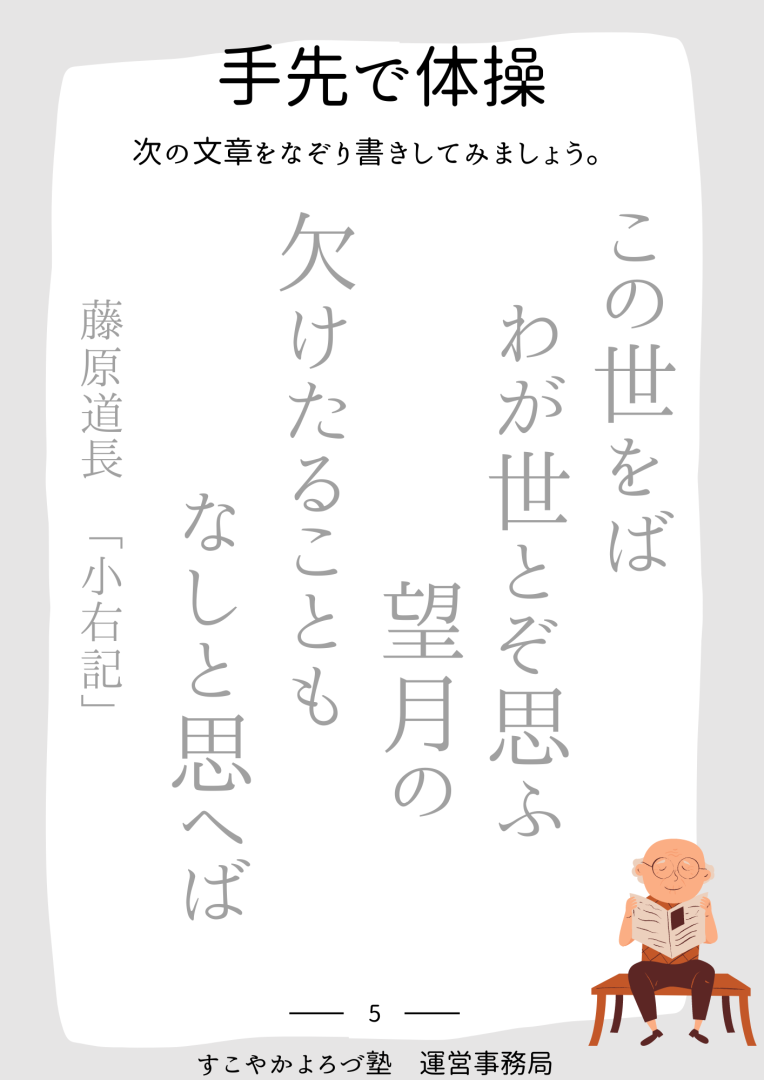 手先で体操
次の文章をなぞり書きしてみましょう。
この世をば
わが世とぞ思ふ
望月の
欠けたることも
なしと思へば
藤原道長　「小右記」
5
すこやかよろづ塾　運営事務局